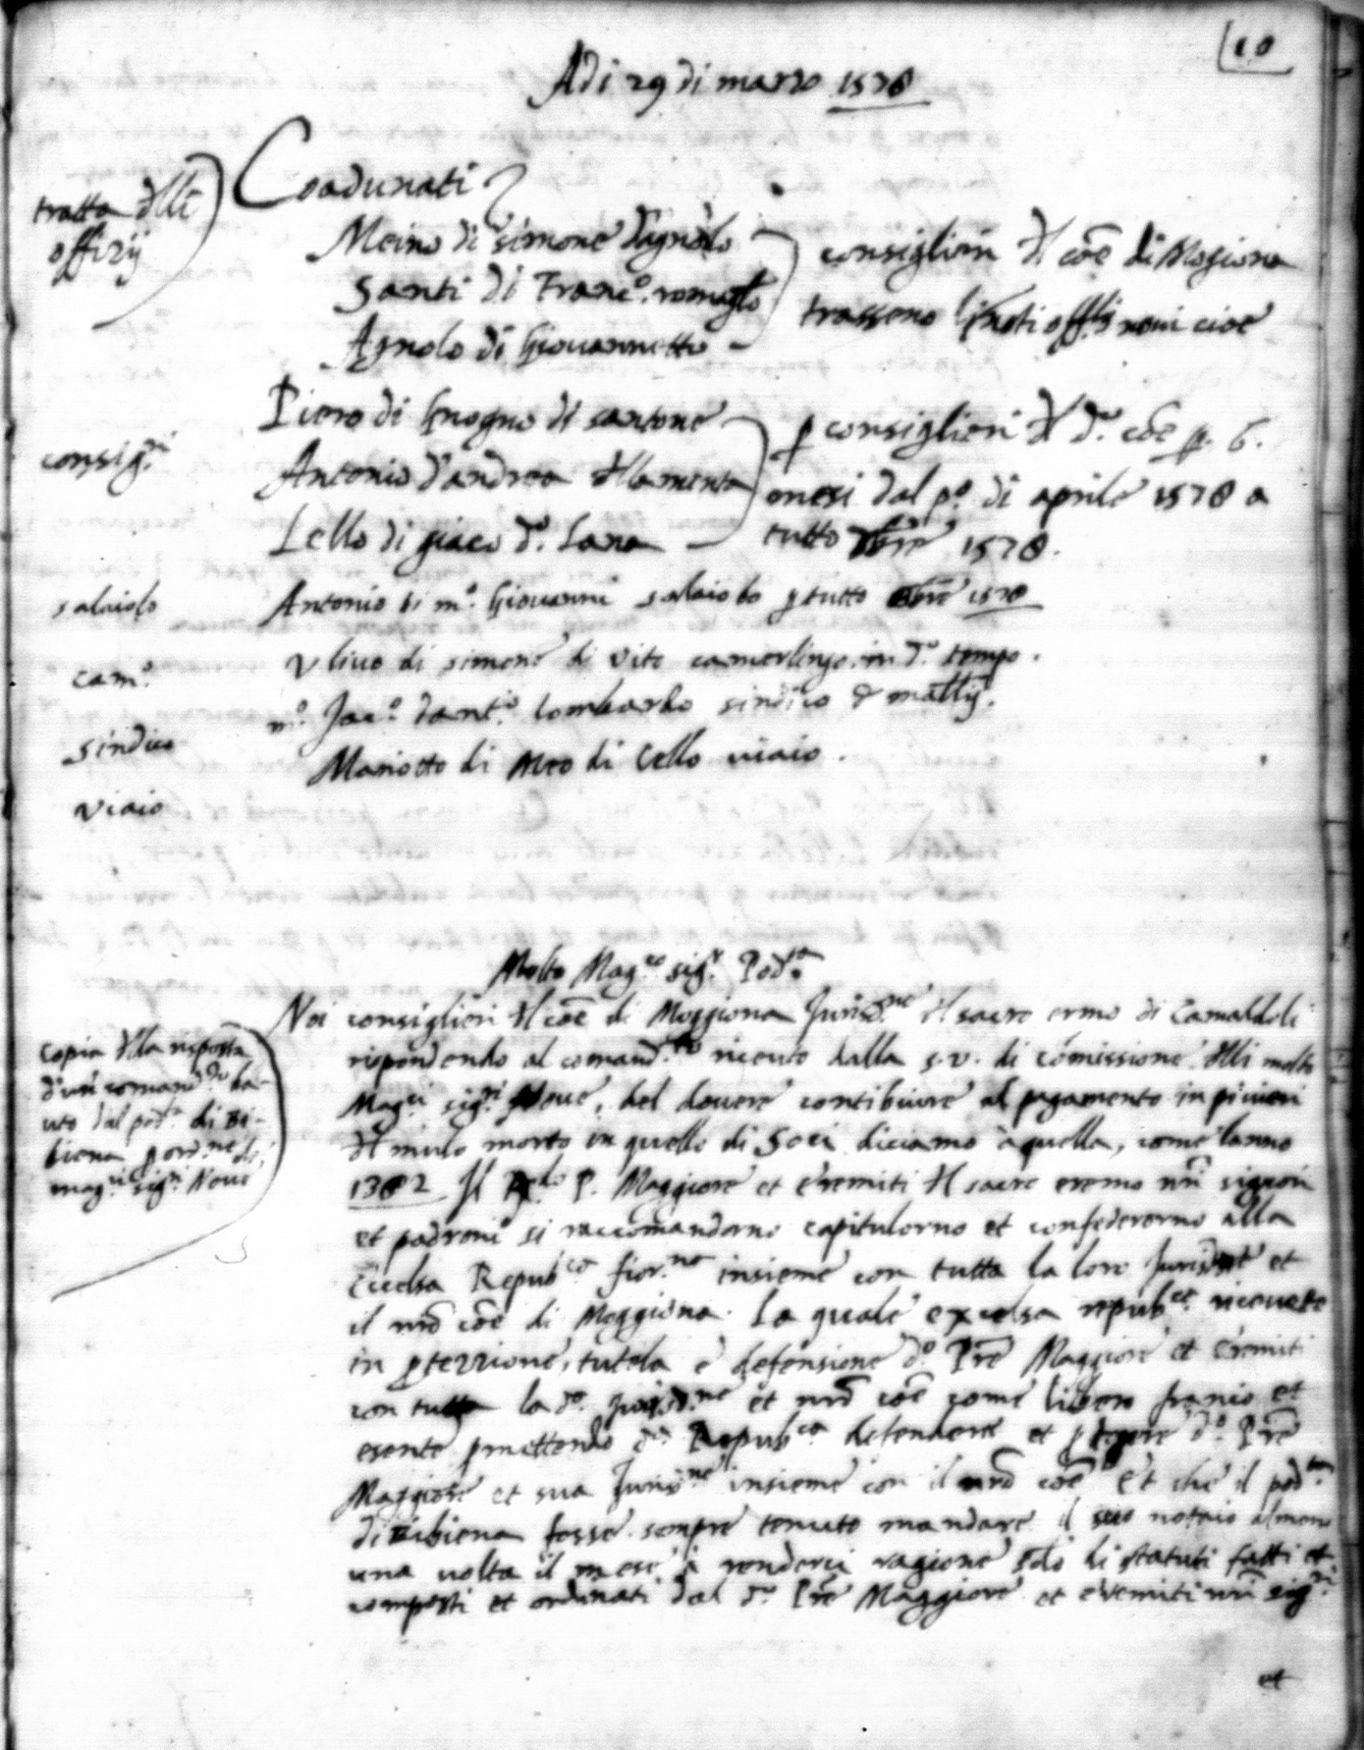 10
Adi 29 di marzo 1578
tratta dlli
offizij
Coadunati
Meino di simone d'agnolo
Santi di Franc.o romagnolo
Agnolo di Giovannetto
consiglieri dl cõe di Mogiona
trasseno offi novi cioe
consig.ri
Piero di di santone
Antonio d'andrea dlla menta
Lello di giaco d.o Lana
p consiglieri dl d.o cõe p. 6.
mesi dal p.o di aprile 1578 a
tutto 7bre 1578.
salaiolo
Antonio di m.o Giovanni salaiolo p tutto 1578
cam.o
Ulivo di simone di Vito camerlingo in d.o tempo.
sindico
m.o Jac.o d'ant.o lombardo sindico & mallev.
viaio
Mariotto di Meo di Cello viaio.
Molto Mag.co sig.r Pod.tà
copia dlla risposta
d'un comand.to ha-
uto dal pod.tà di Bi-
biena p ord.ne dei
mag.ci sig.ri Nove
Noi consiglieri dl cõe di Moggiona Jurisd.ne dl sacro ermo di Camaldoli
rispondendo al comand.to riceuto dalla s.v. di cõmissione dlli molto
Mag.ci sig.ri Nove, del dovere contibuire al pagamento in pivieri
dl mulo morto in quello di Soci diciamo à quella, come l'anno
1382 Il R.do P. Maggiore et eremiti dl sacro eremo nr̃i signori
et padroni si raccomandorno capitulorno et confederorno alla
Eccelsa Repub.ca fior.na insieme con tutta la loro Jurisd.ne et
il nr̃o cõe di Moggiona. La quale excelsa repub.ca ricevete
in pterzione, tutela e defensione d.o Pr̃e Maggiore et eremiti
con tutta la d.a Jurisd.ne et nr̃o cõe come libero franco et
esente pmettendo d.a Repub.ca defendere et ptegere d.o Pr̃e
Maggiore et sua Jurisd.ne insieme con il nr̃o cõe et che il pod.tà
di Bibiena fosse sempre tenuto mandare il suo notaio almeno
una volta il mese à renderci ragione sdo li statuti fatti et
composti et ordinati dal d.o Pr̃e Maggiore et eremiti nr̃i sig.ri
et